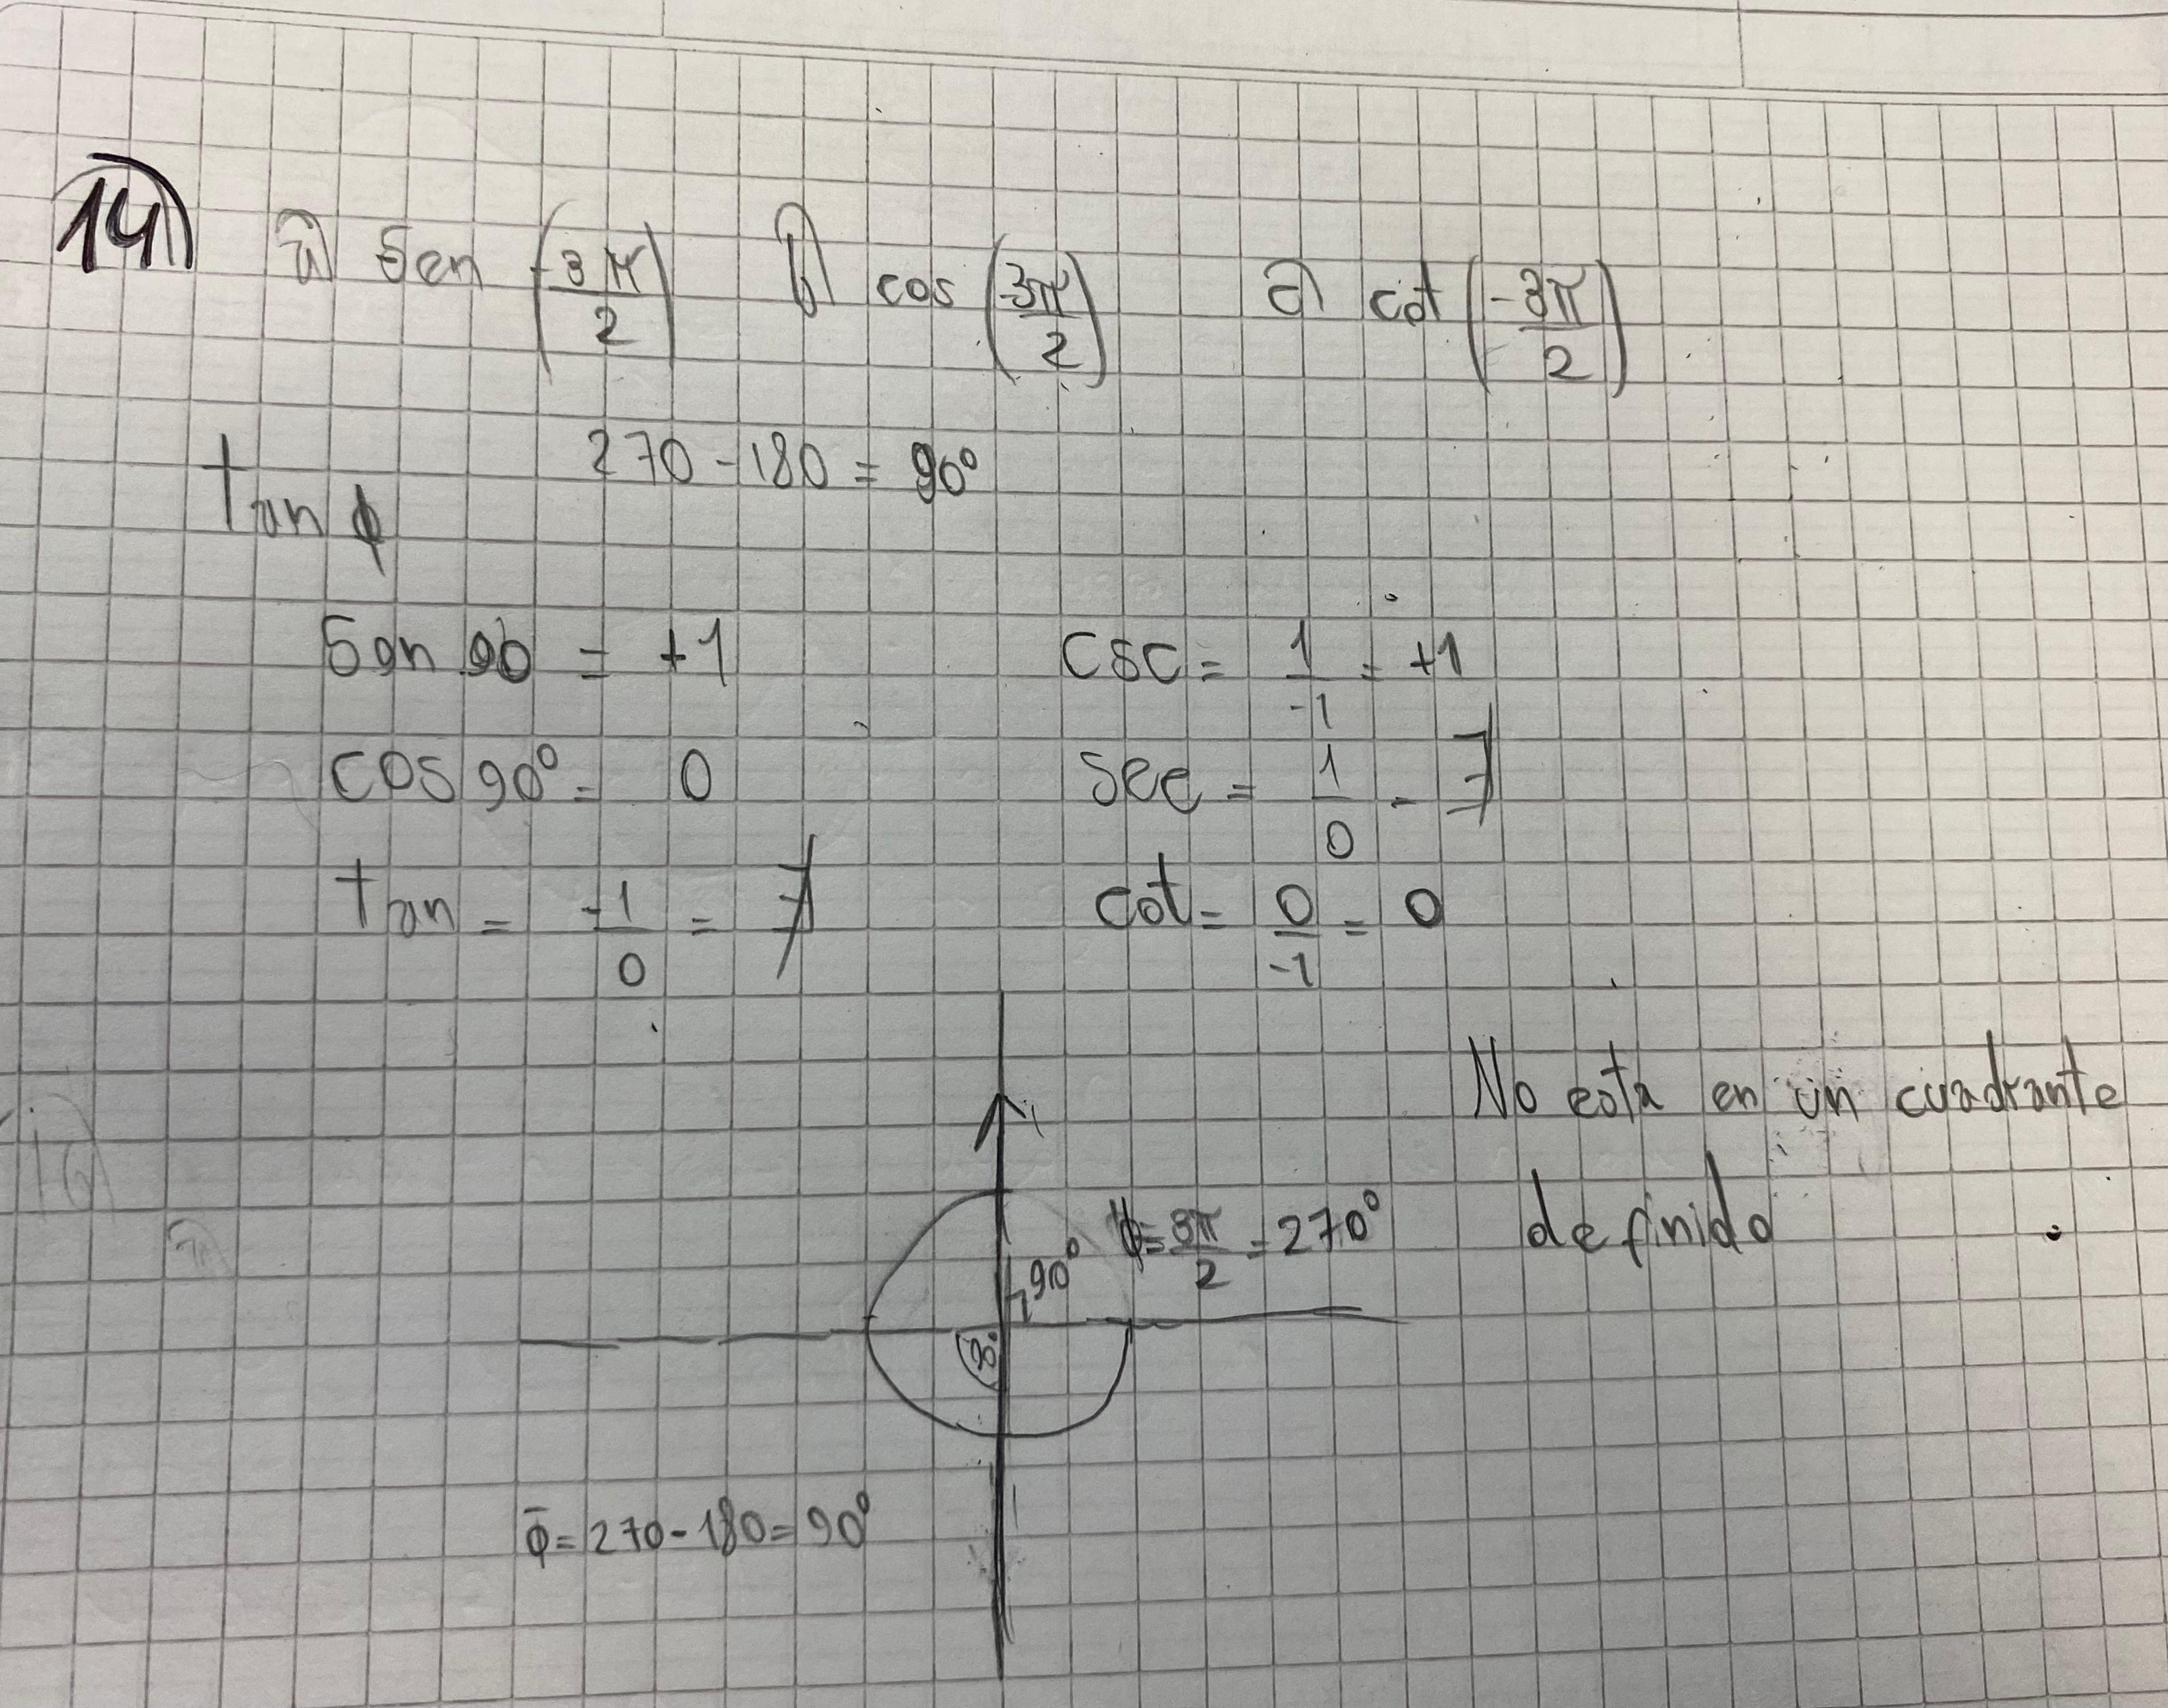 14) a) Sen (-3π/2) b) cos (-3π/2) c) cot (-3π/2)
270 - 180 = 90°
tan ϕ
Sen 90 = +1 csc = 1/-1 = +1
cos 90° = 0 sec = 1/0 = ∄
tan = -1/0 = ∄ cot = 0/-1 = 0
No esta en un cuadrante
definido .
90° ϕ = 3π/2 = 270°
90°
ϕ̄ = 270 - 180 = 90°